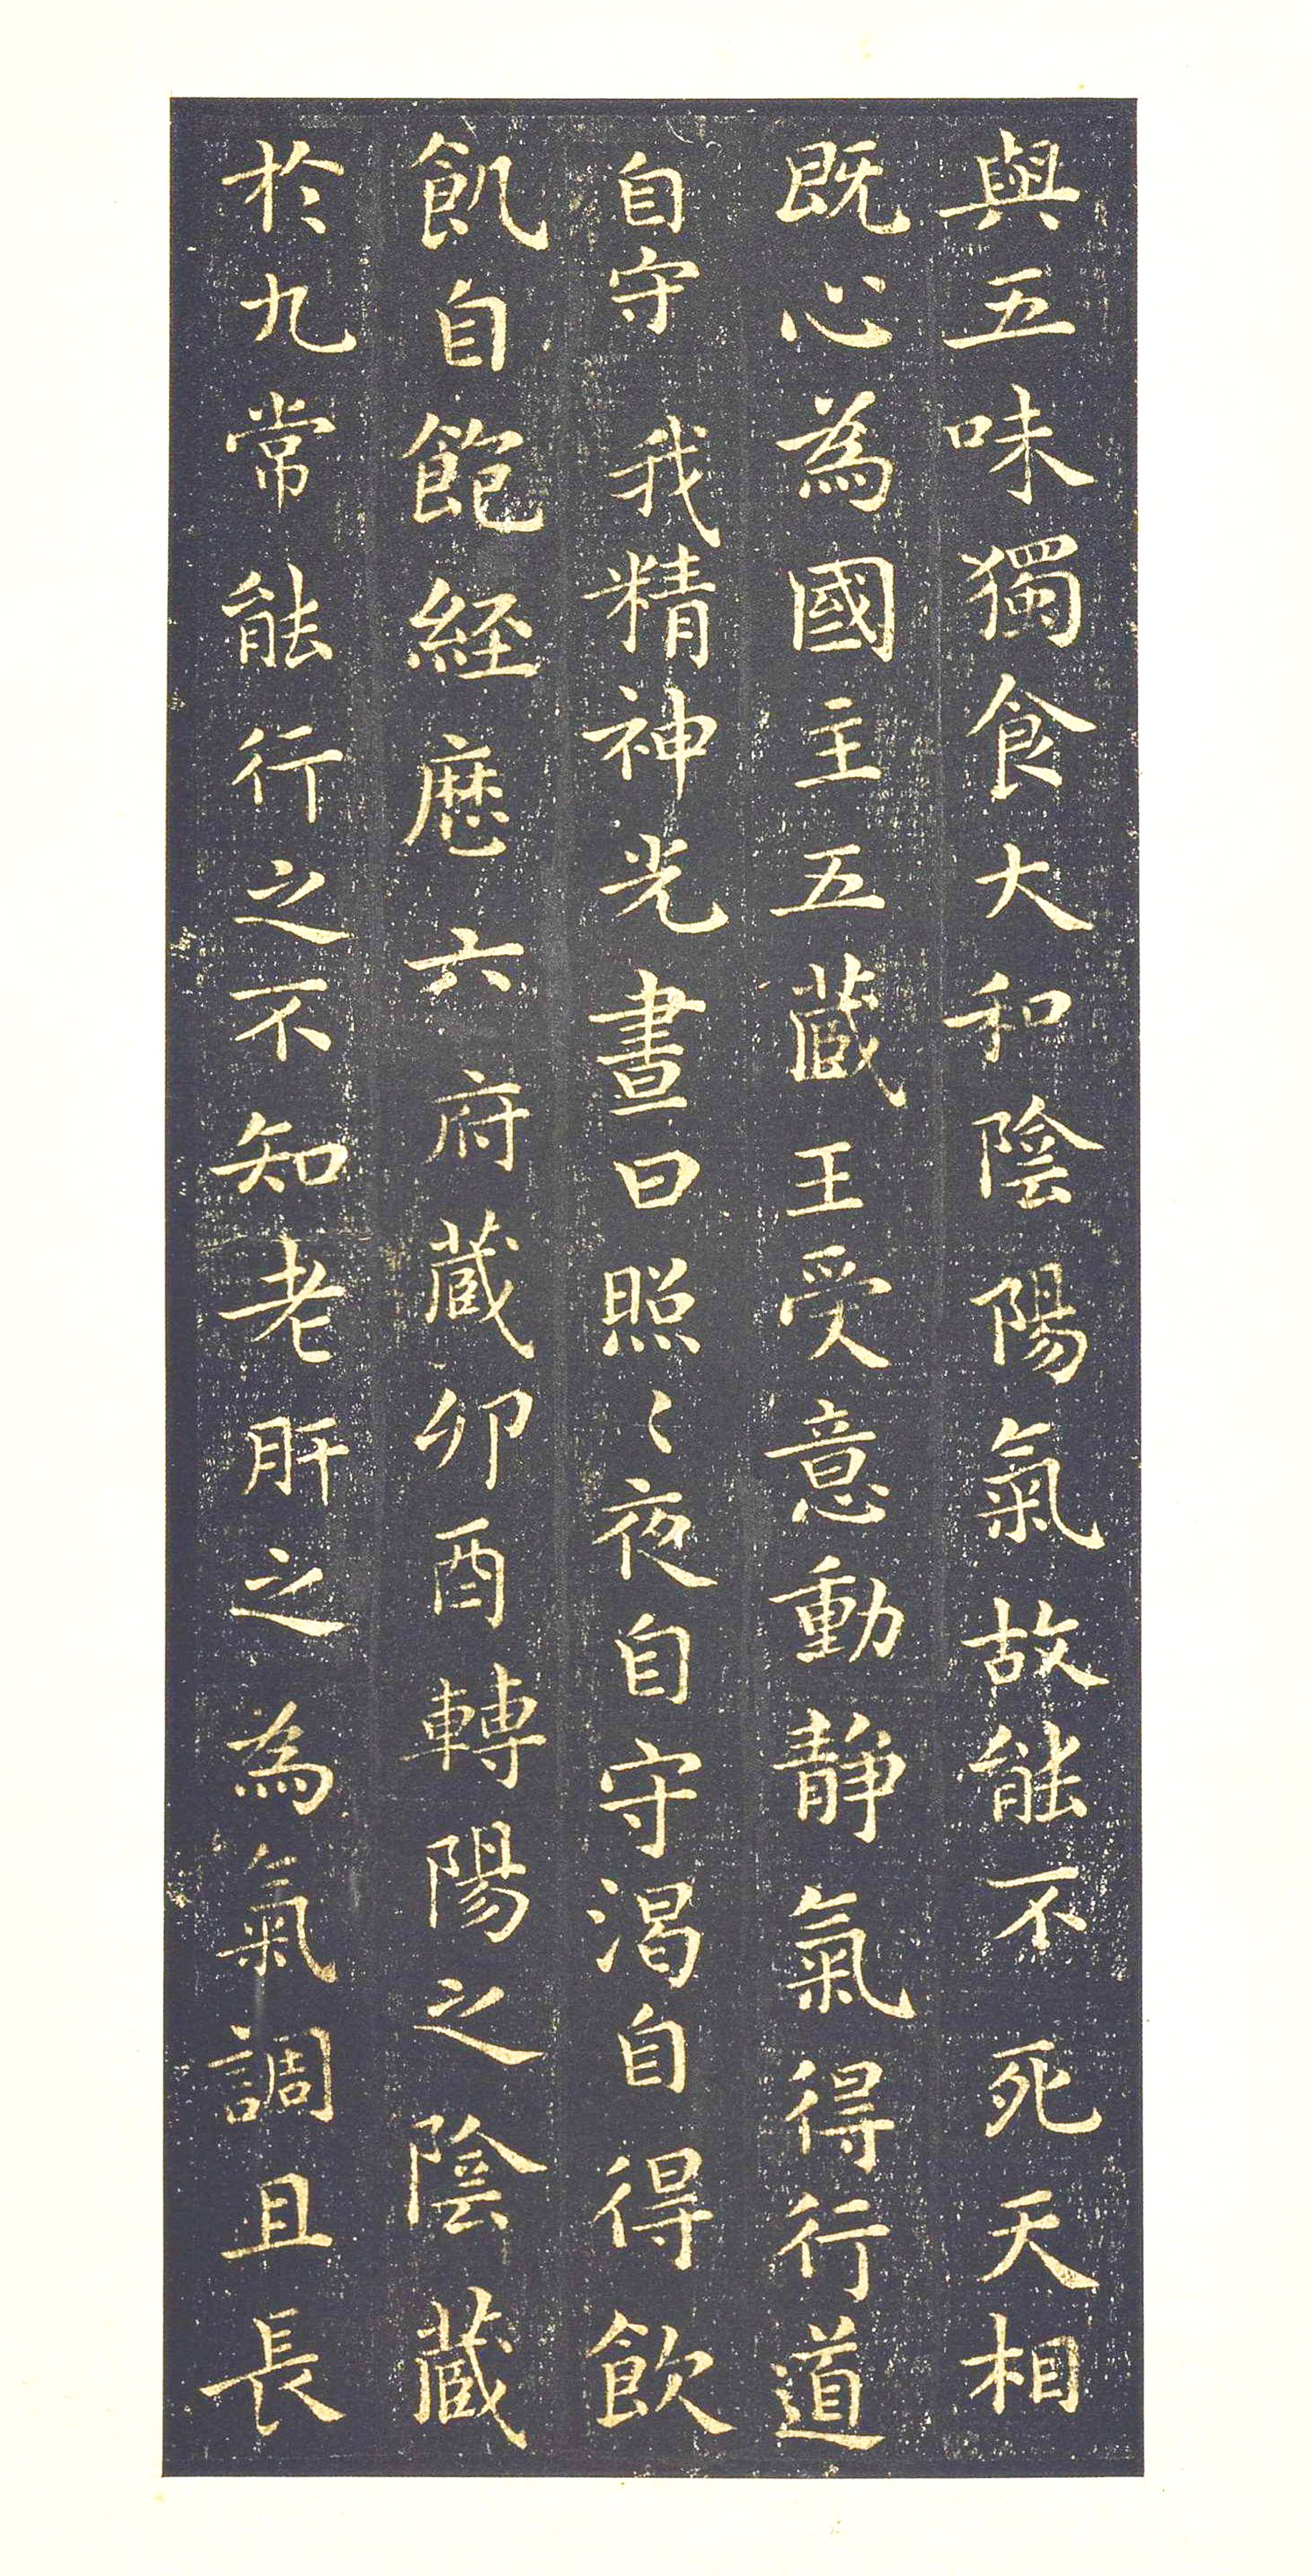 與五味獨食大和陰陽氣故能不死天相
既心為國主五藏王受意動靜氣得行道
自守我精神光晝日照〻夜自守渴自得飲
飢自飽経歴六府藏卯酉轉陽之陰藏
於九常能行之不知老肝之為氣調且長